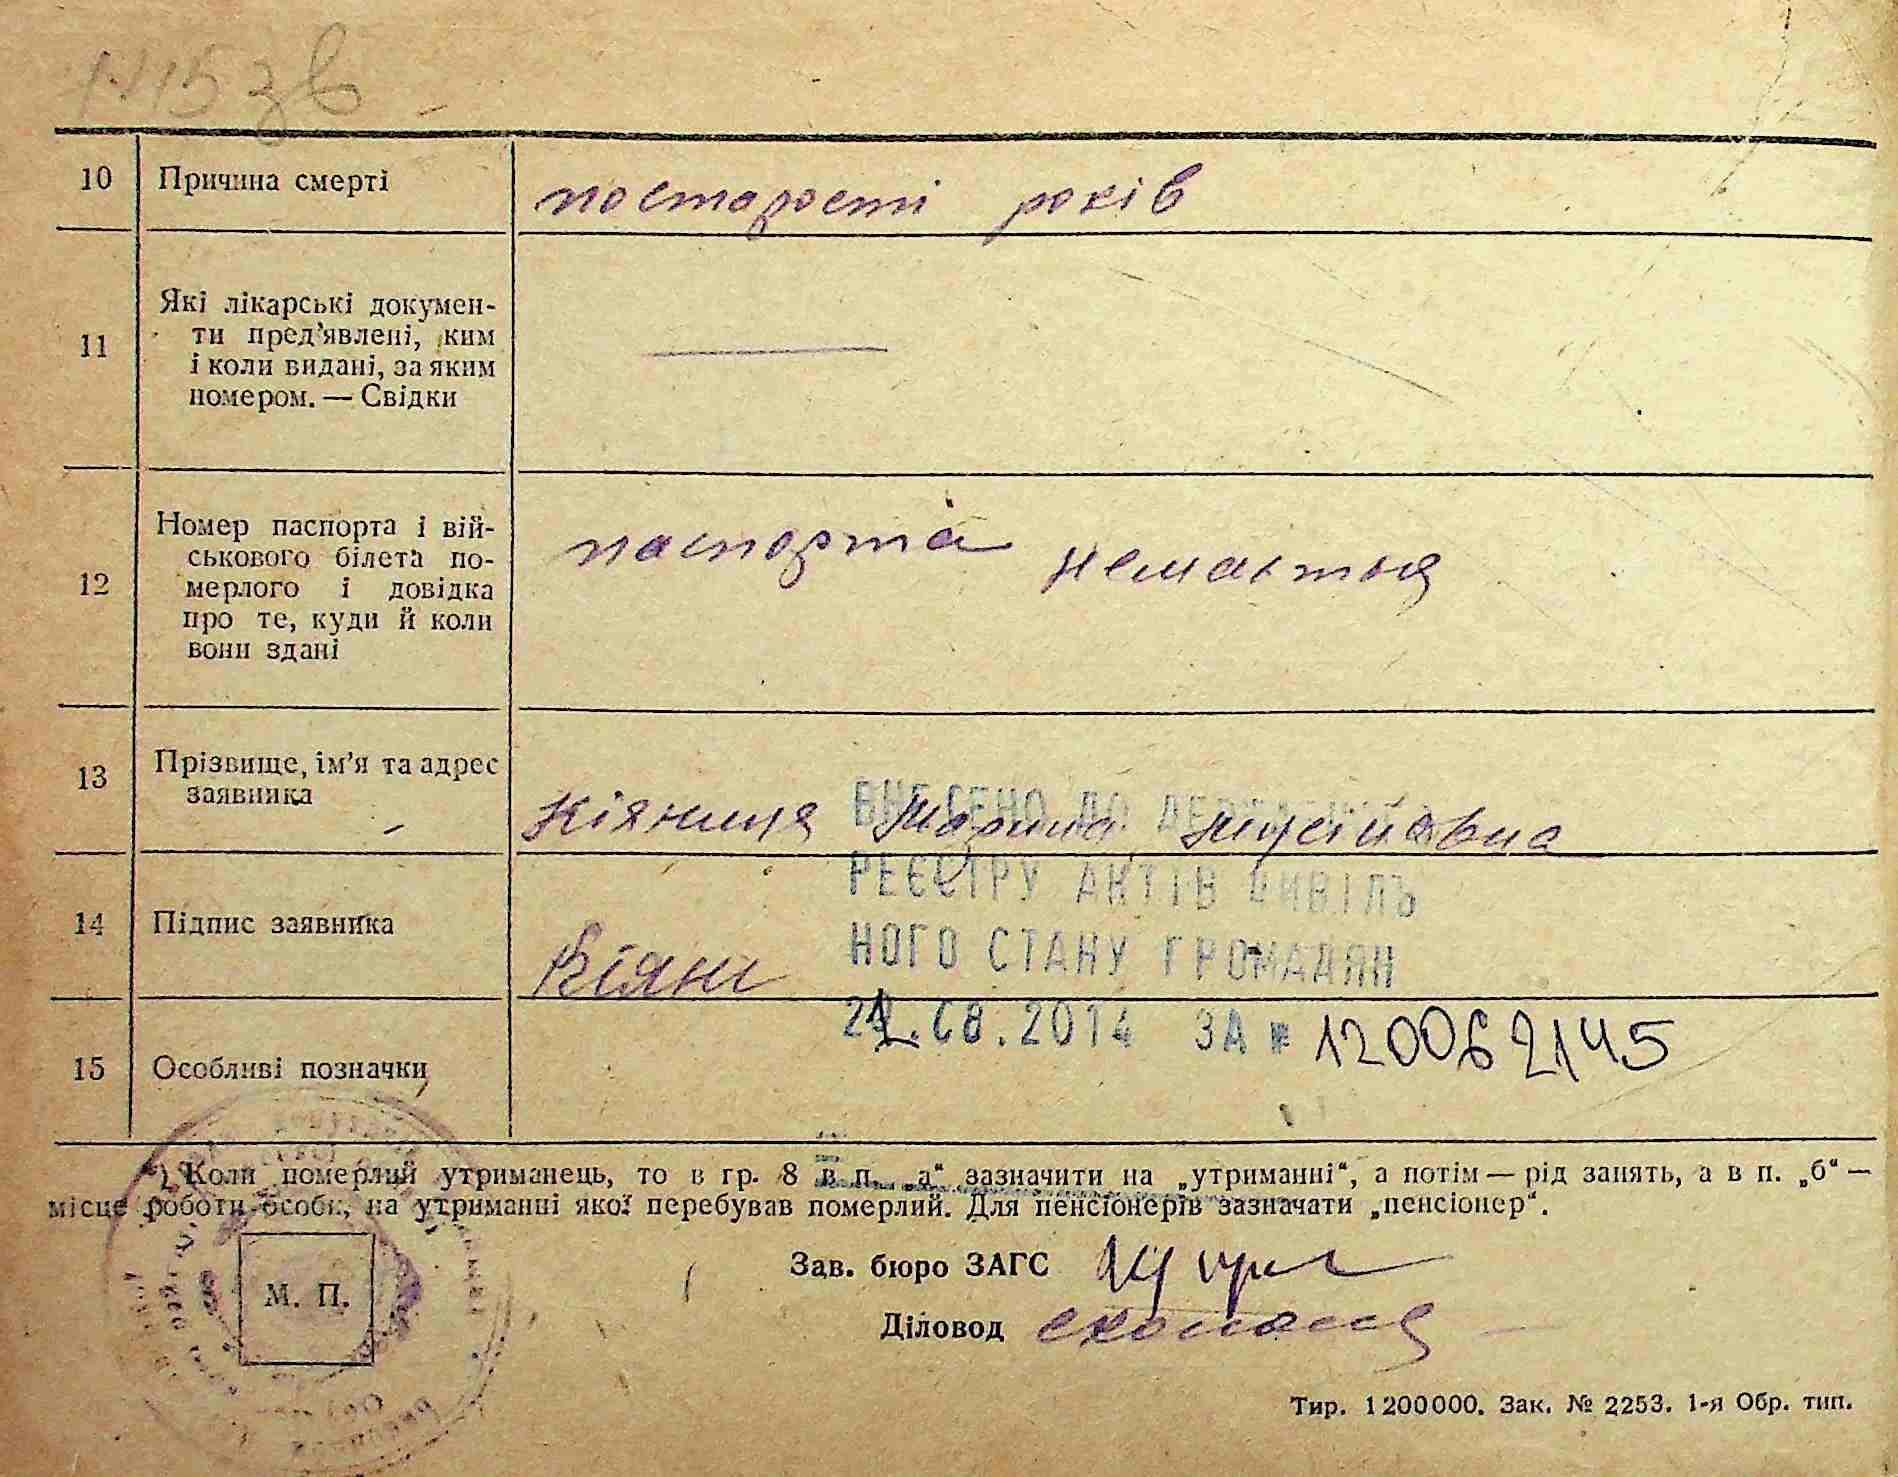 10 Причина смерті
постарості років
11 Які лікарські докумен-
ти пред’явлені, ким
і коли видані, за яким
номером. — Свідки
12 Номер паспорта і вій-
ськового білета по-
мерлого і довідка
про те, куди й коли
вони здані
паспорта
13 Прізвище, ім’я та адрес
заявника
Кіяниця
ВНЕСЕНО ДО
РЕЄСТРУ АКТІВ ЦИВІЛЬ
14 Підпис заявника
НОГО СТАНУ ГРОМАДЯН
Кіяни
.08.2014 ЗА № 120062145
15 Особливі позначки
*) Коли померлий утриманець, то в гр. 8 в п. „а“ зазначити на „утриманні“, а потім — рід занять, а в п. „б“ —
місце роботи особи, на утриманні якої перебував померлий. Для пенсіонерів зазначати „пенсіонер“.
Зав. бюро ЗАГС
М. П.
Діловод
Тир. 1200000. Зак. № 2253. 1-я Обр. тип.